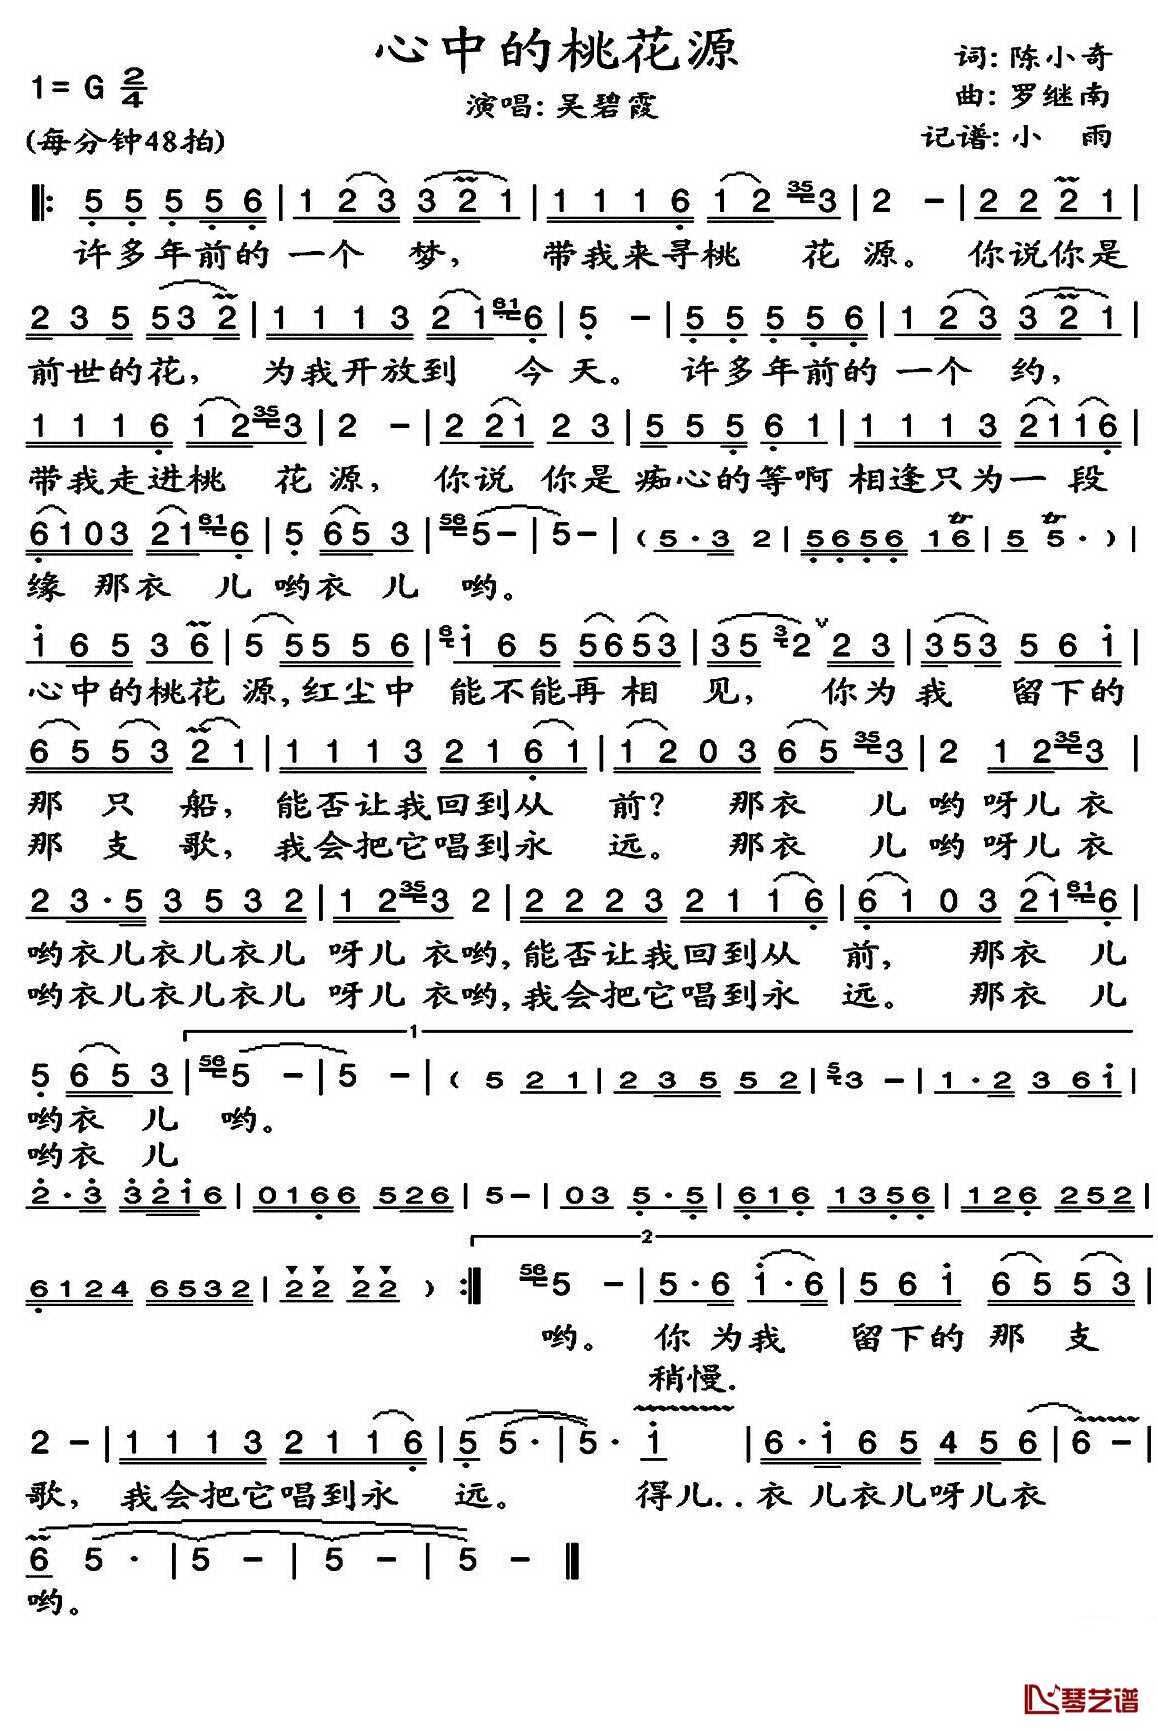 心中的桃花源
词: 陈小奇
1= G 2/4
演唱: 吴碧霞
曲: 罗继南
(每分钟48拍)
记谱: 小 雨
5 5 5 5 6 | 1 2 3 3 2 1 | 1 1 1 6 1 2 35 3 | 2 - | 2 2 2 1 |
许多年前的 一个 梦, 带我来寻桃 花 源。 你说你是
2 3 5 5 3 2 | 1 1 1 3 2 1 61 6 | 5 - | 5 5 5 5 6 | 1 2 3 3 2 1 |
前世的花, 为我开放到 今 天。 许多年前的 一个 约,
1 1 1 6 1 2 35 3 | 2 - | 2 2 1 2 3 | 5 5 5 6 1 | 1 1 1 3 2 1 1 6 |
带我走进桃 花 源, 你说 你是 痴心的等啊 相逢只为一 段
6 1 0 3 2 1 61 6 | 5 6 5 3 | 56 5 - | 5 - | ( 5 · 3 2 | 5 6 5 6 1 6 | 5 5 · ) |
缘 那衣 儿 哟衣 儿 哟。
1 6 5 3 6 | 5 5 5 5 6 | 6 1 6 5 5 6 5 3 | 3 5 3 2 2 3 | 3 5 3 5 6 1 |
心中的桃花 源, 红尘中 能不能再 相 见, 你为 我 留下的
6 5 5 3 2 1 | 1 1 1 3 2 1 6 1 | 1 2 0 3 6 5 35 3 | 2 1 2 35 3 |
那 只 船, 能否让我回到从 前? 那衣 儿 哟 呀儿 衣
那 支 歌, 我会把它唱到永 远。 那衣 儿 哟 呀儿 衣
2 3 · 5 3 5 3 2 | 1 2 35 3 2 | 2 2 2 3 2 1 1 6 | 6 1 0 3 2 1 61 6 |
哟衣儿衣儿衣儿 呀儿 衣哟, 能否让我回到从 前, 那衣 儿
哟衣儿衣儿衣儿 呀儿 衣哟, 我会把它唱到永 远。 那衣 儿
1
5 6 5 3 | 56 5 - | 5 - | ( 5 2 1 | 2 3 5 5 2 | 5 3 - | 1 · 2 3 6 1 |
哟衣 儿 哟。
哟衣 儿
2 · 3 3 2 1 6 | 0 1 6 6 5 2 6 | 5 - | 0 3 5 · 5 | 6 1 6 1 3 5 6 | 1 2 6 2 5 2 |
2
6 1 2 4 6 5 3 2 | 2 2 2 2 ) :| 56 5 - | 5 · 6 1 · 6 | 5 6 1 6 5 5 3 |
哟。 你 为我 留下的 那 支
稍慢.
2 - | 1 1 1 3 2 1 1 6 | 5 5 · | 5 · 1 | 6 · 1 6 5 4 5 6 | 6 - |
歌, 我会把它唱到永 远。 得儿.. 衣 儿衣儿呀儿衣
6 5 · | 5 - | 5 - | 5 - ‖
哟。
琴艺谱